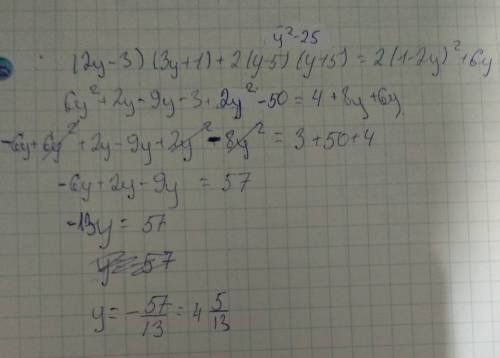 y²-25
(2y-3)(3y+1)+2(y-5)(y+5)=2(1-2y)²+6y
6y²+2y-9y-3+2y²-50=4+8y+6y
-6y+6y²+2y-9y+2y²-8y²=3+50+4
-6y+2y-9y=57
-13y=57
y=-57
y=-57/13=4 5/13